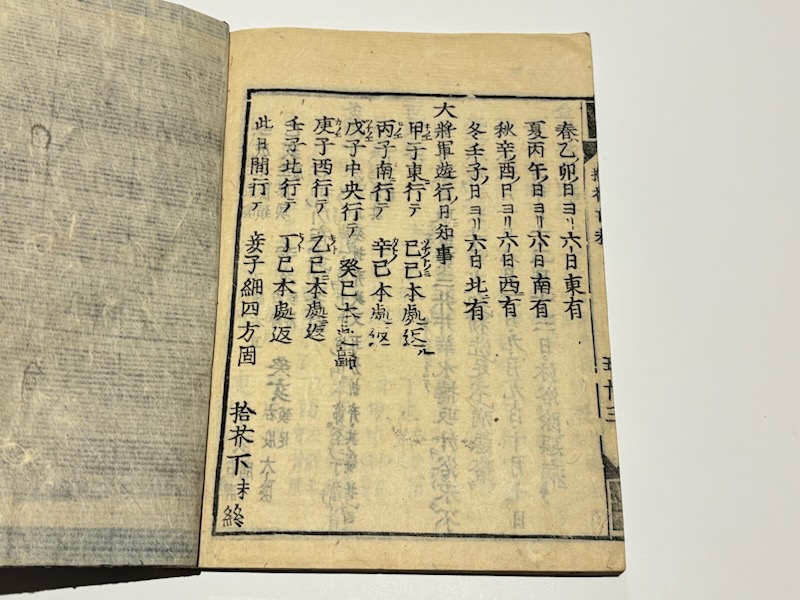 春乙卯ノ日ヨリ六日東有
夏丙午ノ日ヨリ六日南有
秋辛酉日ヨリ六日西有
冬壬子ノ日ヨリ六日北有
大將軍遊行ノ日知事
甲子東行テ 己巳本處返ル
丙子南行テ 辛巳本處返
戊子中央行テ 癸巳本處
庚子西行テ 乙巳本處返
壬子北行テ 丁巳本處返
此日間行テ 子細四方固
拾芥下末終